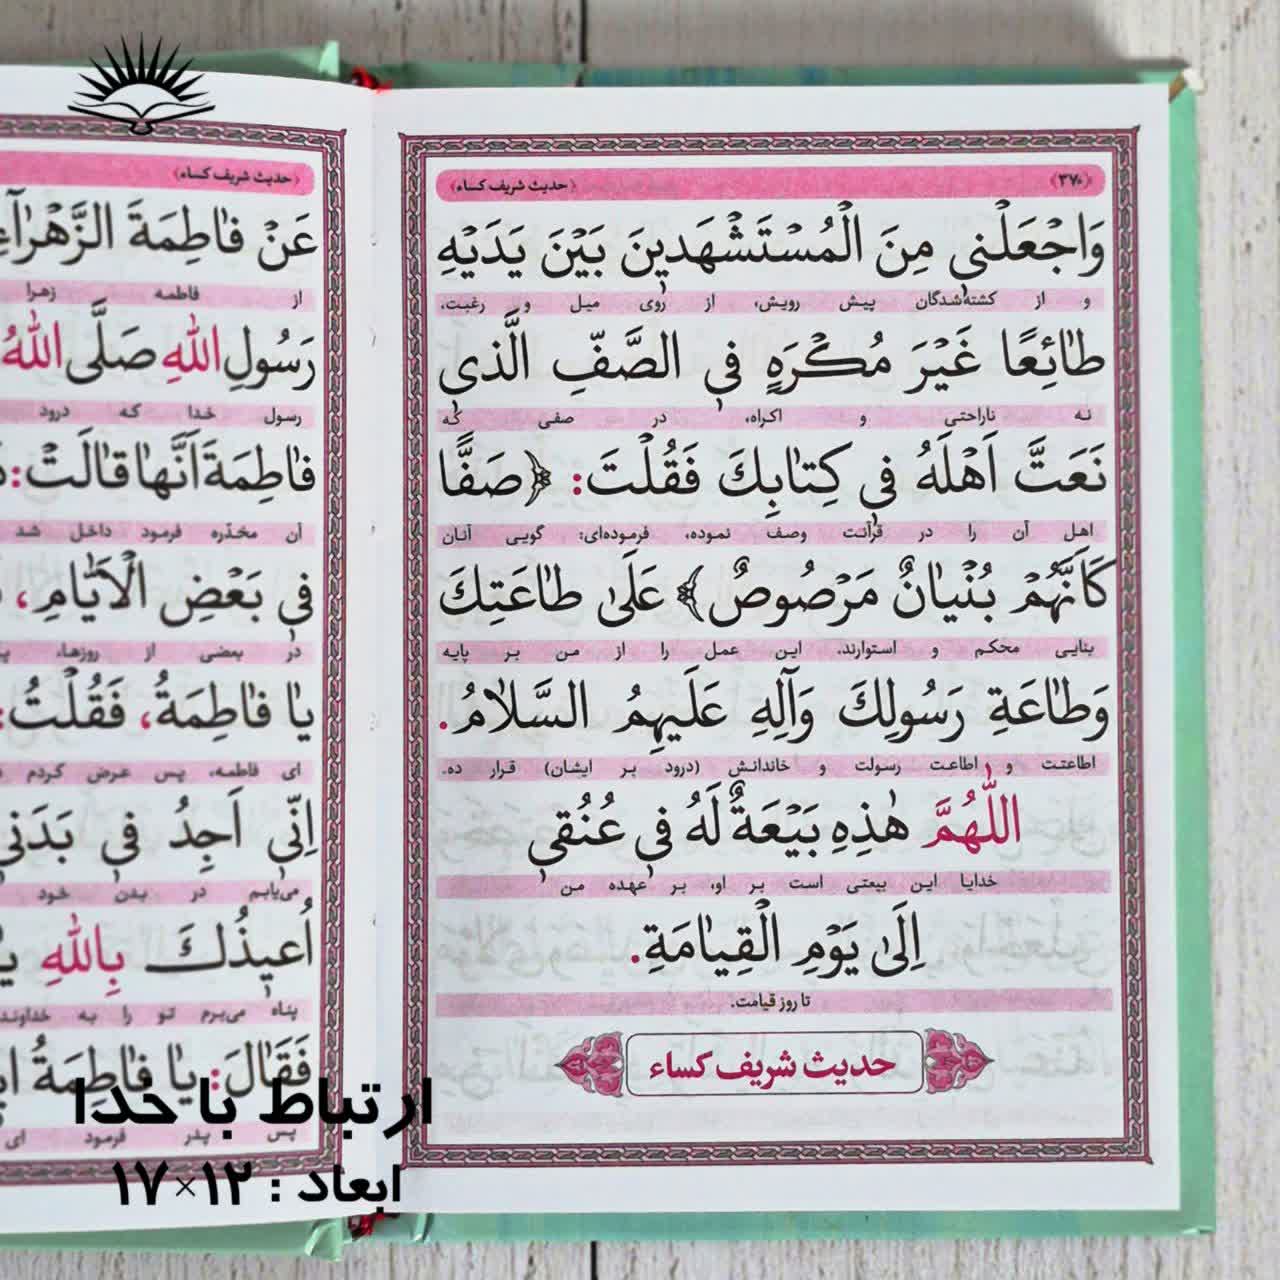 ﴿۳۷۰﴾ ﴿حدیث شریف کساء﴾
وَاجْعَلْنی مِنَ الْمُسْتَشْهَدینَ بَیْنَ یَدَیْهِ
و از کشته‌شدگان پیش رویش، از روی میل و رغبت،
طائِعًا غَیْرَ مُکْرَهٍ فِی الصَّفِّ الَّذی
نه ناراحتی و اکراه، در صفی که
نَعَتَّ اَهْلَهُ فی کِتابِکَ فَقُلْتَ: ﴿صَفًّا
اهل آن را در قرآنت وصف نموده، فرموده‌ای: گویی آنان
کَاَنَّهُمْ بُنْیانٌ مَرْصُوصٌ﴾ عَلی طاعَتِکَ
بنایی محکم و استوارند. این عمل را از من بر پایه
وَطاعَةِ رَسُولِکَ وَآلِهِ عَلَیهِمُ السَّلامُ.
اطاعتت و اطاعت رسولت و خاندانش (درود بر ایشان) قرار ده.
اَللّهُمَّ هٰذِهِ بَیْعَةٌ لَهُ فی عُنُقی
خدایا این بیعتی است بر او، بر عهده من
اِلی یَوْمِ الْقِیامَةِ.
تا روز قیامت.
حدیث شریف کساء
﴿حدیث شریف کساء﴾
عَنْ فاطِمَةَ الزَّهْراءِ
از فاطمه زهرا
رَسُولِ اللهِ صَلَّی اللهُ
رسول خدا که درود
فاطِمَةَ اَنَّها قالَتْ:
آن مخدّره فرمود داخل شد
فی بَعْضِ الْاَیّامِ،
در بعضی از روزها،
یا فاطِمَةُ، فَقُلْتُ:
ای فاطمه، پس عرض کردم
اِنّی اَجِدُ فی بَدَنی
می‌یابم در بدن خود
اُعیذُکَ بِاللهِ یا
پناه می‌برم تو را به خداوند
فَقالَ: یا فاطِمَةُ
پس پدر فرمود ای
ارتباط با خدا
ابعاد : ۱۲×۱۷